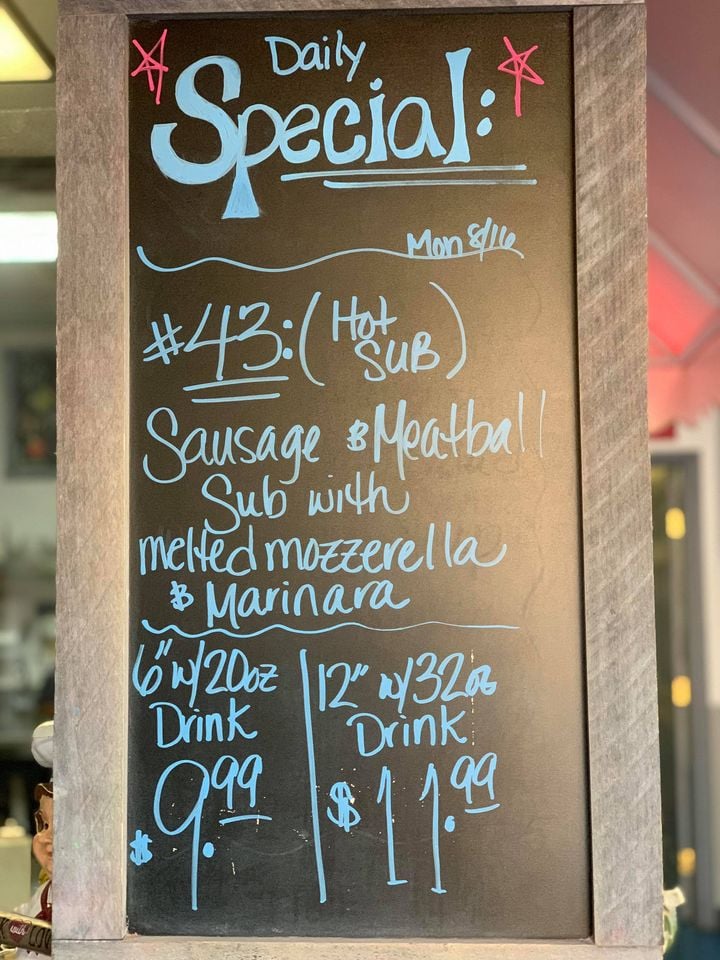 Daily
Special:
Mon 8/16
#43: (Hot
SUB)
Sausage & Meatball
Sub with
melted mozzerella
& Marinara
6" w/20oz
Drink
$9.99
12" w/32oz
Drink
$11.99